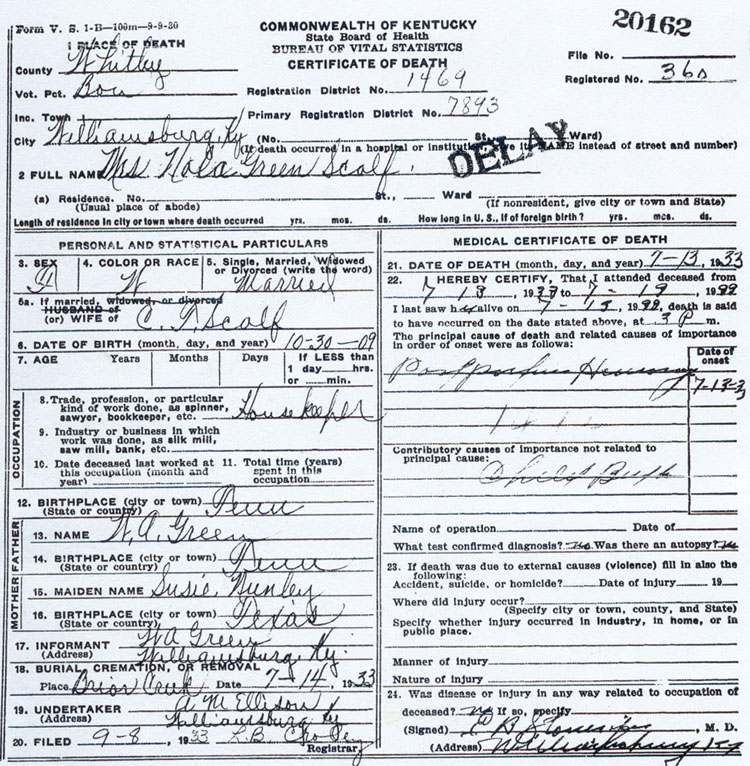 Form V. S. 1-B—100m—9-9-30
20162
COMMONWEALTH OF KENTUCKY
State Board of Health
BUREAU OF VITAL STATISTICS
CERTIFICATE OF DEATH
1 PLACE OF DEATH
County Whitley
File No.
Registered No. 360
Vot. Pct.
Registration District No. 1469
Inc. Town
Primary Registration District No. 7893
City Williamsburg, Ky (No. St. Ward)
(If death occurred in a hospital or institution, give its NAME instead of street and number)
DELAY
2 FULL NAME Mrs Nola Green Scalf.
(a) Residence. No. St., Ward
(Usual place of abode) (If nonresident, give city or town and State)
Length of residence in city or town where death occurred yrs. mos. ds. How long in U. S., if of foreign birth? yrs. mos. ds.
PERSONAL AND STATISTICAL PARTICULARS
3. SEX 4. COLOR OR RACE 5. Single, Married, Widowed
or Divorced (write the word)
W Married
5a. If married, widowed, or divorced
HUSBAND of
(or) WIFE of Scalf
6. DATE OF BIRTH (month, day, and year) 10-30-09
7. AGE Years Months Days If LESS than
1 day hrs.
or min.
OCCUPATION
8. Trade, profession, or particular
kind of work done, as spinner,
sawyer, bookkeeper, etc. Housekeeper
9. Industry or business in which
work was done, as silk mill,
saw mill, bank, etc.
10. Date deceased last worked at 11. Total time (years)
this occupation (month and spent in this
year) occupation
12. BIRTHPLACE (city or town) Tenn
(State or country)
FATHER
13. NAME W. A. Green
14. BIRTHPLACE (city or town) Tenn
(State or country)
MOTHER
15. MAIDEN NAME Susie
16. BIRTHPLACE (city or town) Texas
(State or country)
17. INFORMANT W A Green
(Address) Williamsburg Ky.
18. BURIAL, CREMATION, OR REMOVAL
Place Briar Creek Date 7-14, 1933
19. UNDERTAKER A M Ellison
(Address) Williamsburg Ky
20. FILED 9-8, 1933 L.B.
Registrar
MEDICAL CERTIFICATE OF DEATH
21. DATE OF DEATH (month, day, and year) 7-13, 1933
22. I HEREBY CERTIFY, That I attended deceased from
7 13, 19 to 7-, 19
I last saw h alive on 7-13, 19, death is said
to have occurred on the date stated above, at 3 P m.
The principal cause of death and related causes of importance
in order of onset were as follows:
Date of
onset
7-13-3
Contributory causes of importance not related to
principal cause:
Child Birth
Name of operation Date of
What test confirmed diagnosis? no Was there an autopsy? no
23. If death was due to external causes (violence) fill in also the
following:
Accident, suicide, or homicide? Date of injury 19
Where did injury occur?
(Specify city or town, county, and State)
Specify whether injury occurred in industry, in home, or in
public place.
Manner of injury
Nature of injury
24. Was disease or injury in any way related to occupation of
deceased? no If so, specify
(Signed) , M. D.
(Address) Williamsburg Ky